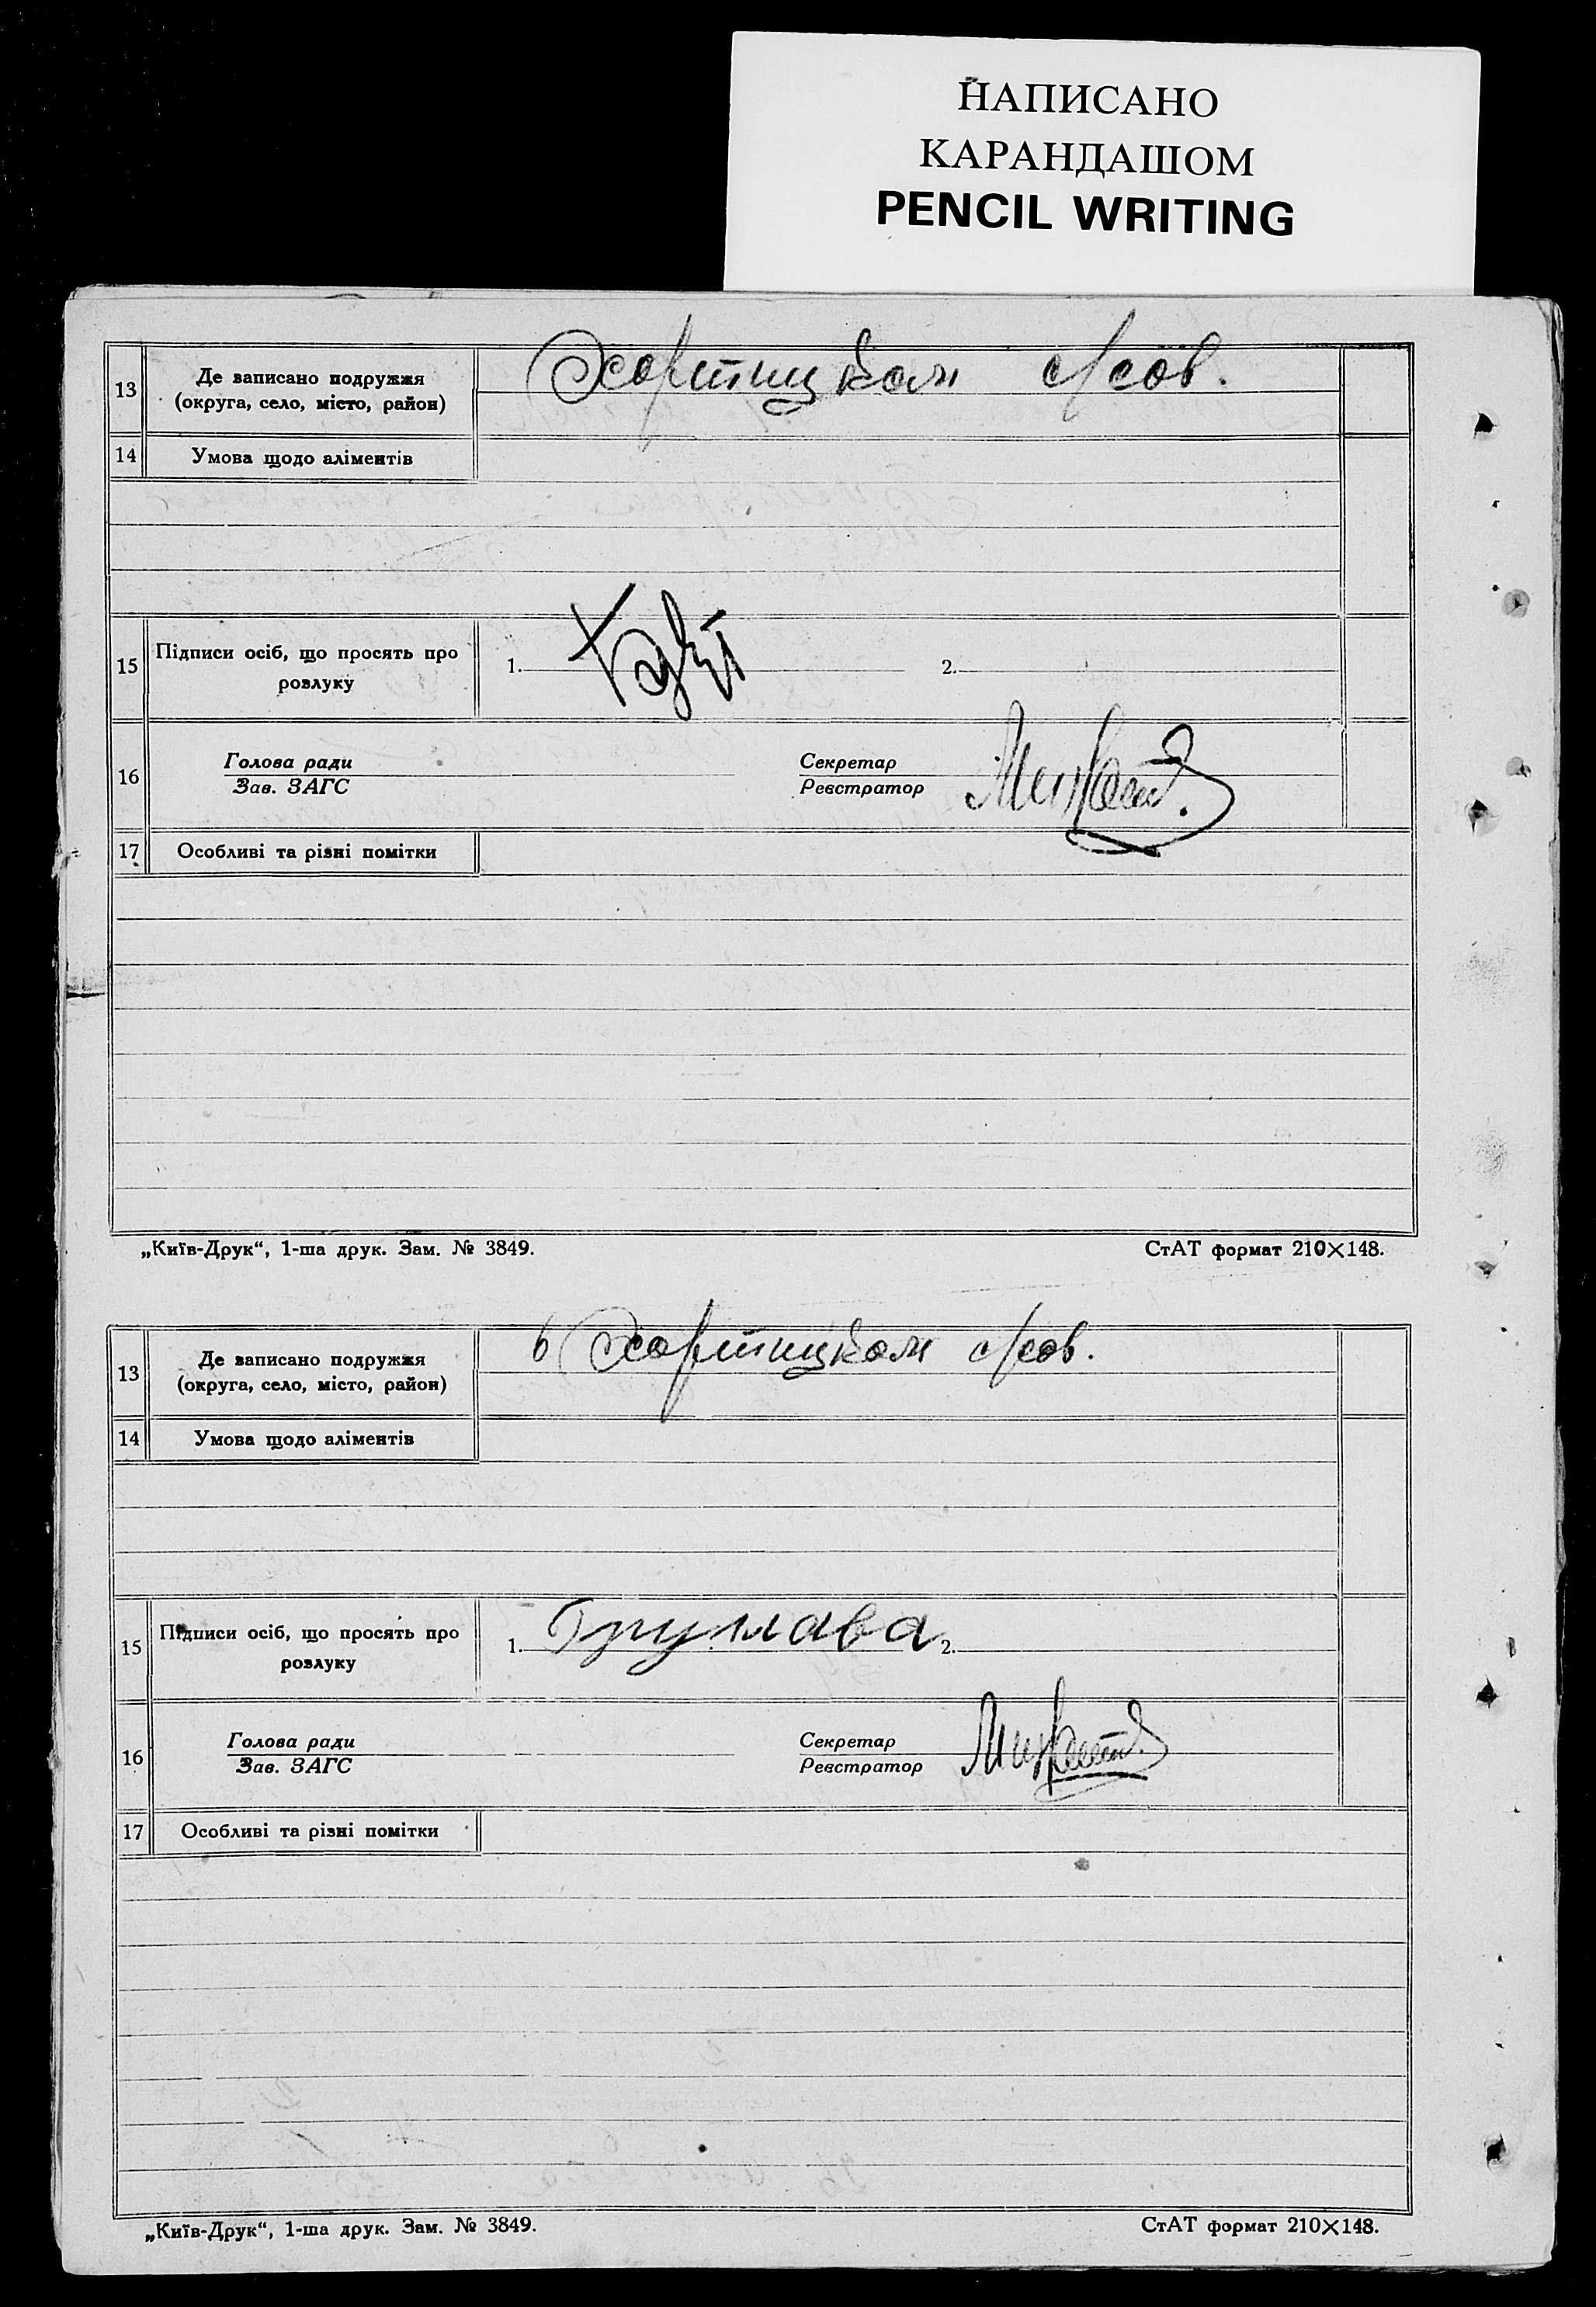 НАПИСАНО
КАРАНДАШОМ
PENCIL WRITING
13 Де записано подружжя
(округа, село, місто, район)
Хортицком с/сов.
14 Умова щодо аліментів
15 Підписи осіб, що просять про
розлуку
1. 2.
16 Голова ради
Зав. ЗАГС
Секретар
Реєстратор
17 Особливі та різні помітки
„Київ-Друк“, 1-ша друк. Зам. № 3849. СтАТ формат 210×148.
13 Де записано подружжя
(округа, село, місто, район)
в Хортицком с/сов.
14 Умова щодо аліментів
15 Підписи осіб, що просять про
розлуку
1. 2.
16 Голова ради
Зав. ЗАГС
Секретар
Реєстратор
17 Особливі та різні помітки
„Київ-Друк“, 1-ша друк. Зам. № 3849. СтАТ формат 210×148.